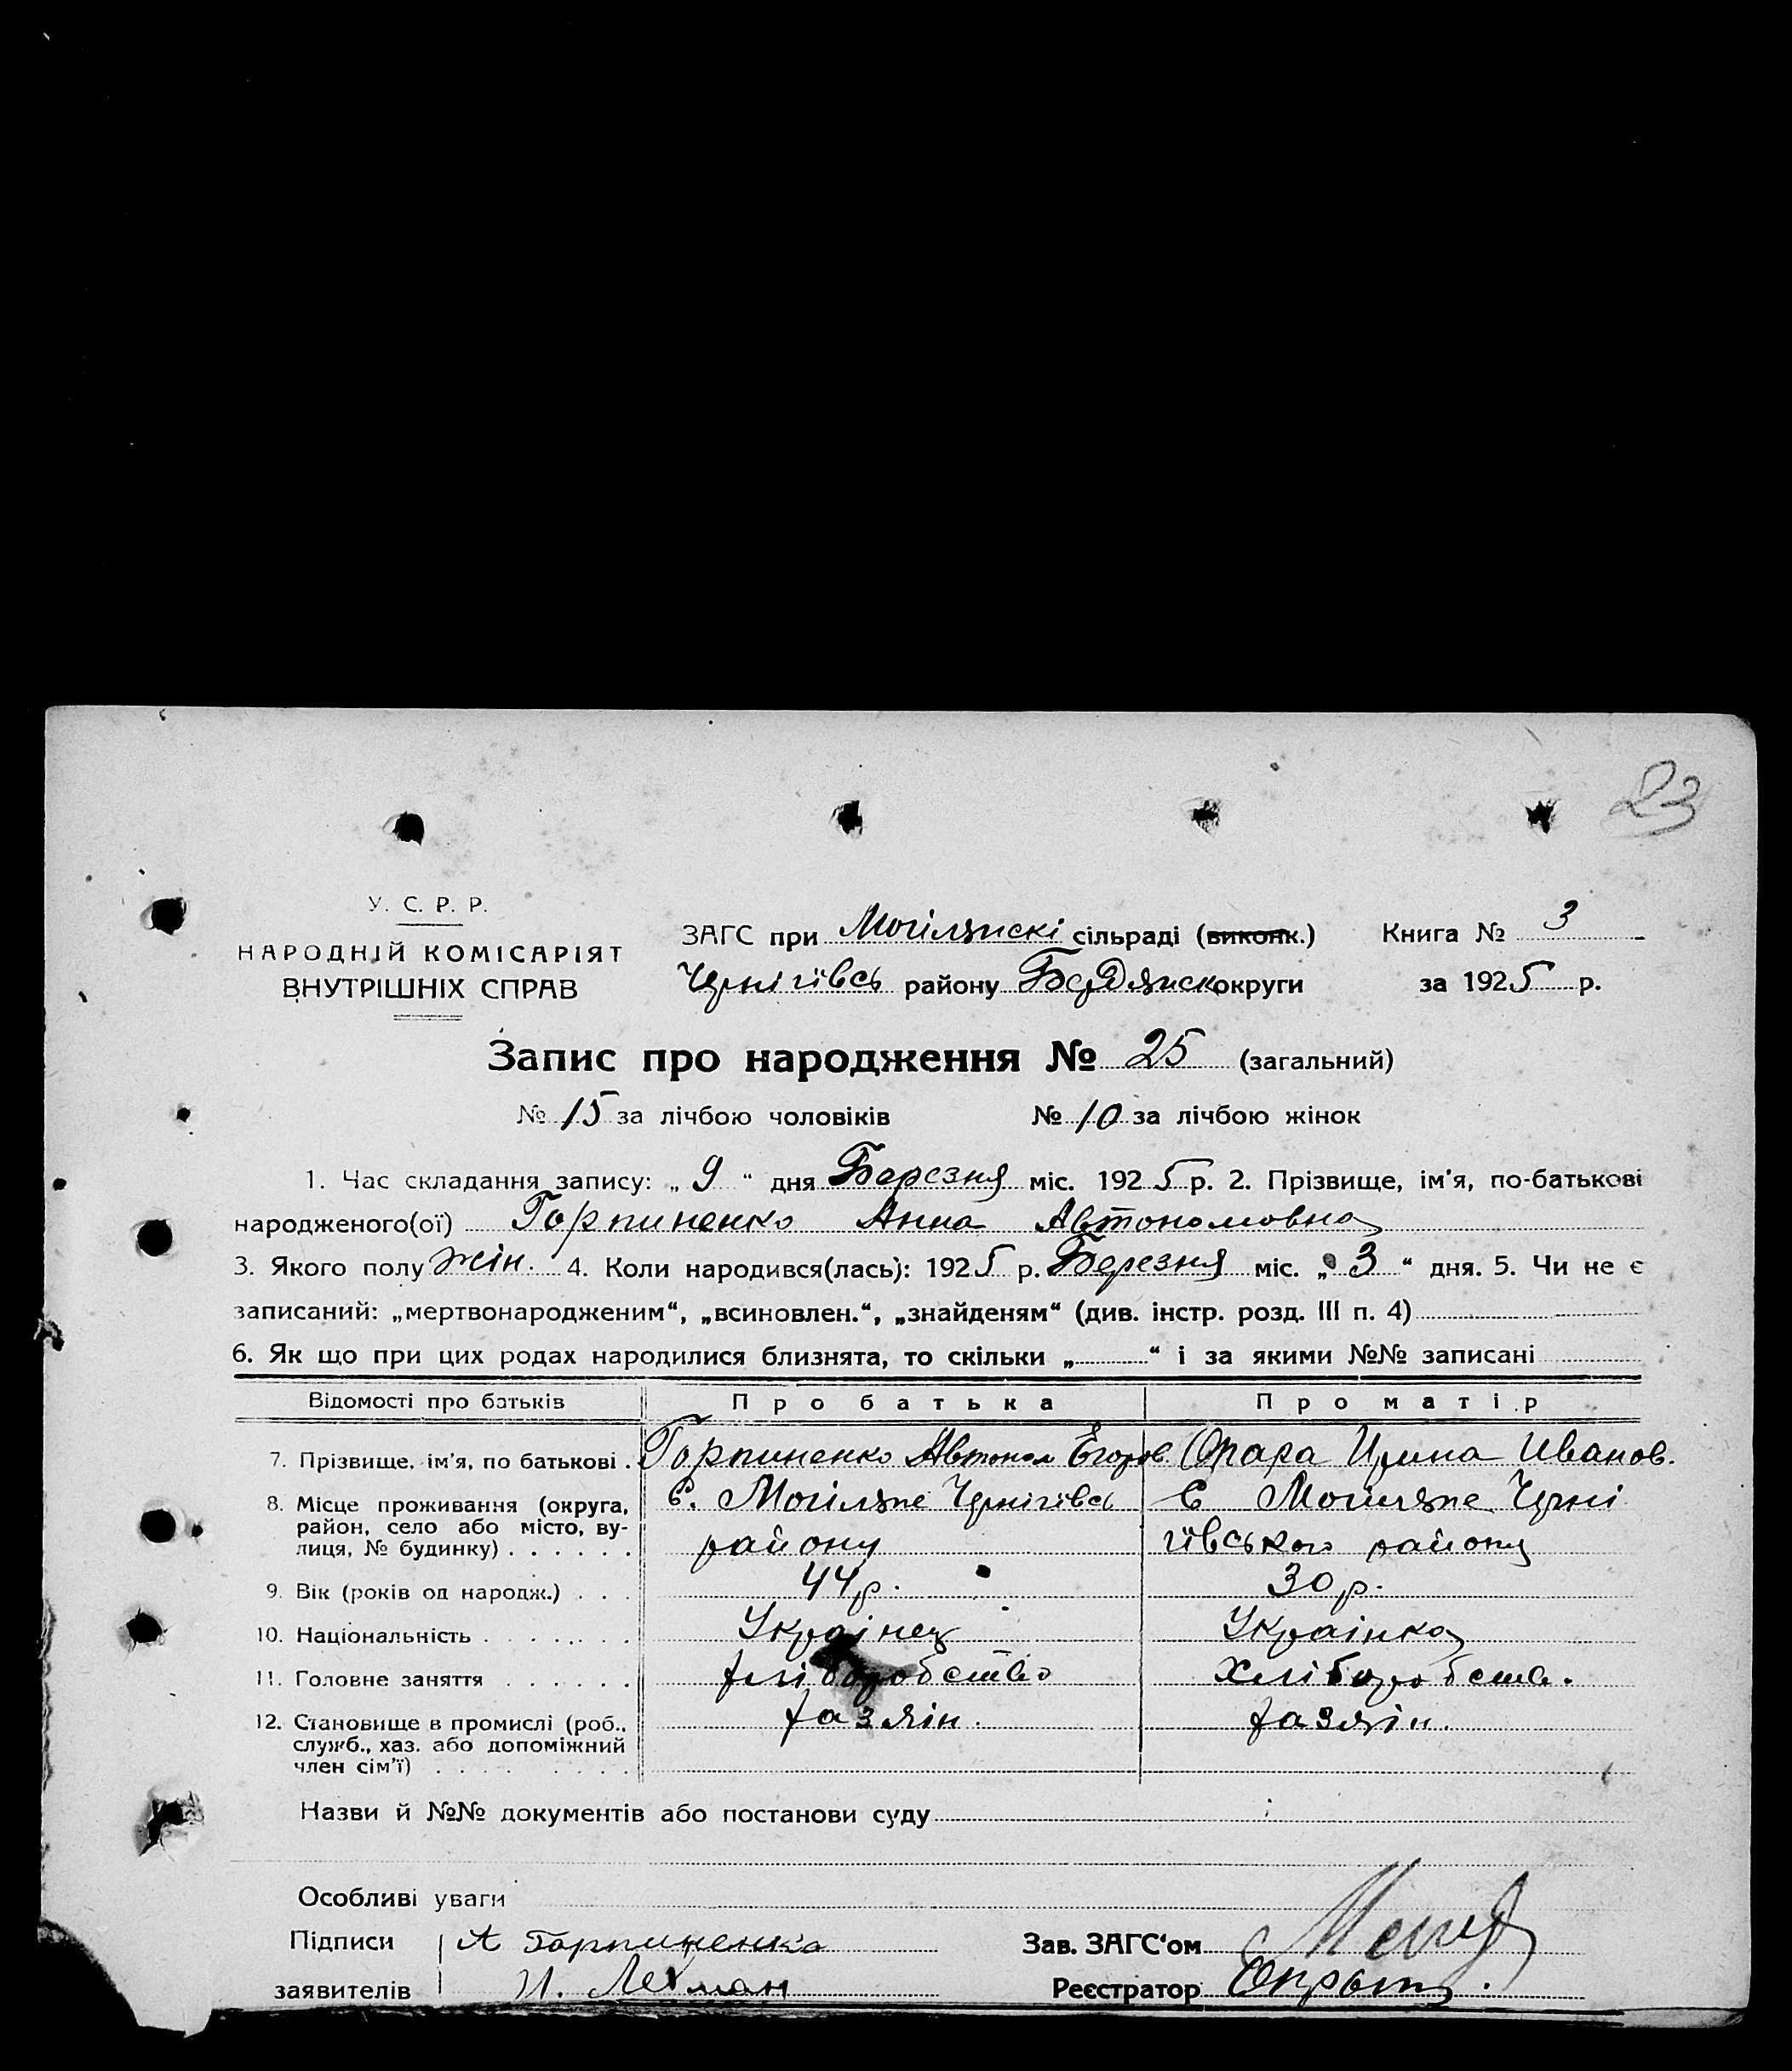 23
У. С. Р. Р.
НАРОДНІЙ КОМІСАРІЯТ
ВНУТРІШНІХ СПРАВ
ЗАГС при Могілянскі сільраді (виконк.) Книга № 3
Чернігівсь району Бердянск округи за 1925 р.
Запис про народження № 25 (загальний)
№ 15 за лічбою чоловіків № 10 за лічбою жінок
1. Час складання запису: „ 9 “ дня Березня міс. 1925 р. 2. Прізвище, ім'я, по-батькові
народженого(ої) Горпиненко Анна Автономовна
3. Якого полу жін. 4. Коли народився(лась): 1925 р. Березня міс. „ 3 “ дня. 5. Чи не є
записаний: „мертвонародженим“, „всиновлен.“, „знайденям“ (див. інстр. розд. III п. 4)
6. Як що при цих родах народилися близнята, то скільки „ “ і за якими №№ записані
Відомості про батьків Про батька Про матір
7. Прізвище, ім'я, по батькові . Горпиненко Автоном Егоров. Опара Ирина Иванов.
8. Місце проживання (округа, С. Могіляне Чернігівсь С Могиляне Черні
район, село або місто, ву- району гівського району
лиця, № будинку) . . . . . .
9. Вік (років од народж.) . . . 44 р. 30 р.
10. Національність . . . . . . . Українец Українка
11. Головне заняття . . . . . . хліборобство Хліборобств.
12. Становище в промислі (роб., хазяін. хазяін.
служб., хаз. або допоміжний
член сім'ї) . . . . . . . .
Назви й №№ документів або постанови суду
Особливі уваги
Підписи А Горпиненко Зав. ЗАГС'ом
заявителів И. Реєстратор